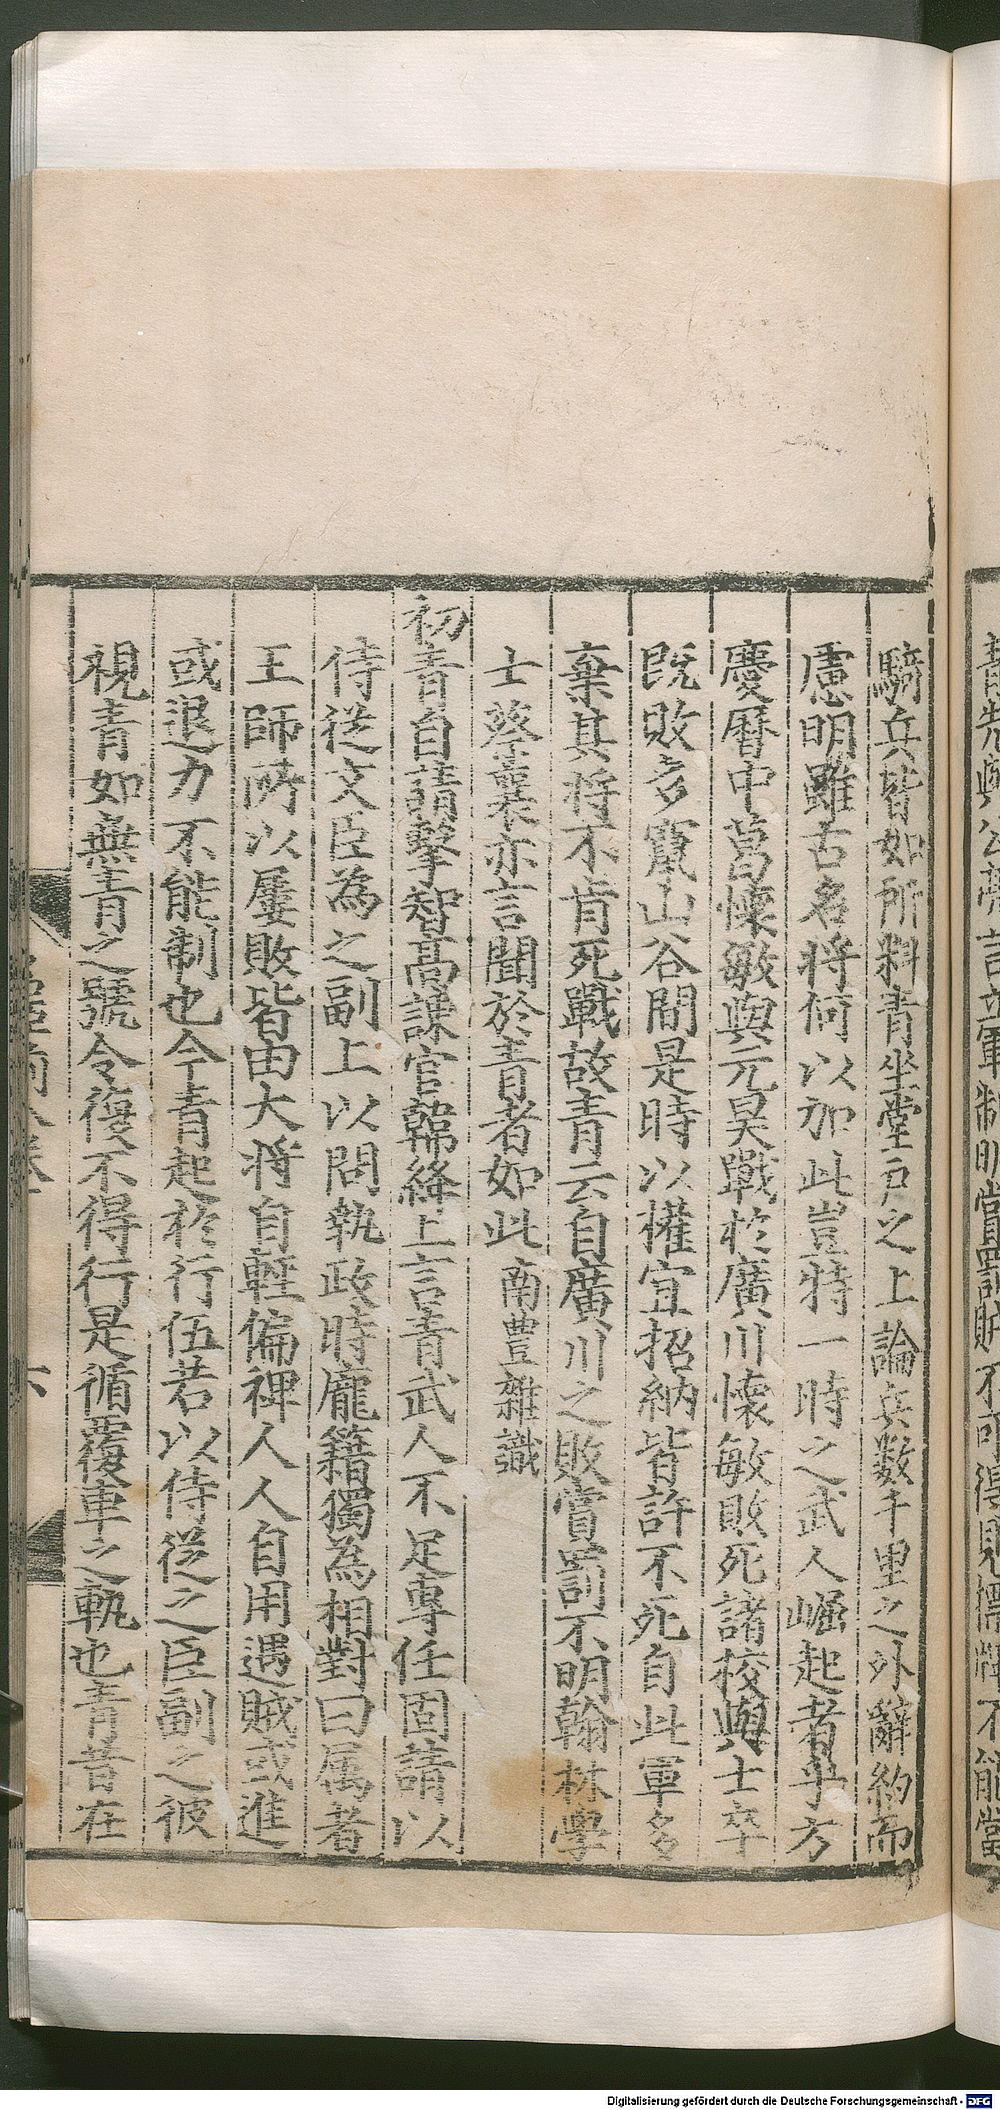 騎兵皆如所料青坐堂戶之上論兵数千里之外辭約而
慮明雖古名将何以加此豈特一時之武人崛起者乎方
慶曆中葛懷敏與元昊戰扵廣川懷敏敗死諸校與士卒
既敗多竄山谷間是時以權宜招納皆許不死自此軍多
棄其将不肯死戰故青云自廣川之敗賞罰不明翰林學
士蔡襄亦言聞於青者如此南豊雜識
初青自請擊智高諫官韓絳上言青武人不足專任固請以
侍從文臣為之副上以問執政時龐籍獨為相對曰属者
王師所以屢敗皆由大将自輕偏禆人人自用遇賊或進
或退力不能制也今青起扵行伍若以侍從之臣副之彼
視青如無青之號令復不得行是循覆車之軌也青昔在
六
Digitalisierung gefördert durch die Deutsche Forschungsgemeinschaft - DFG